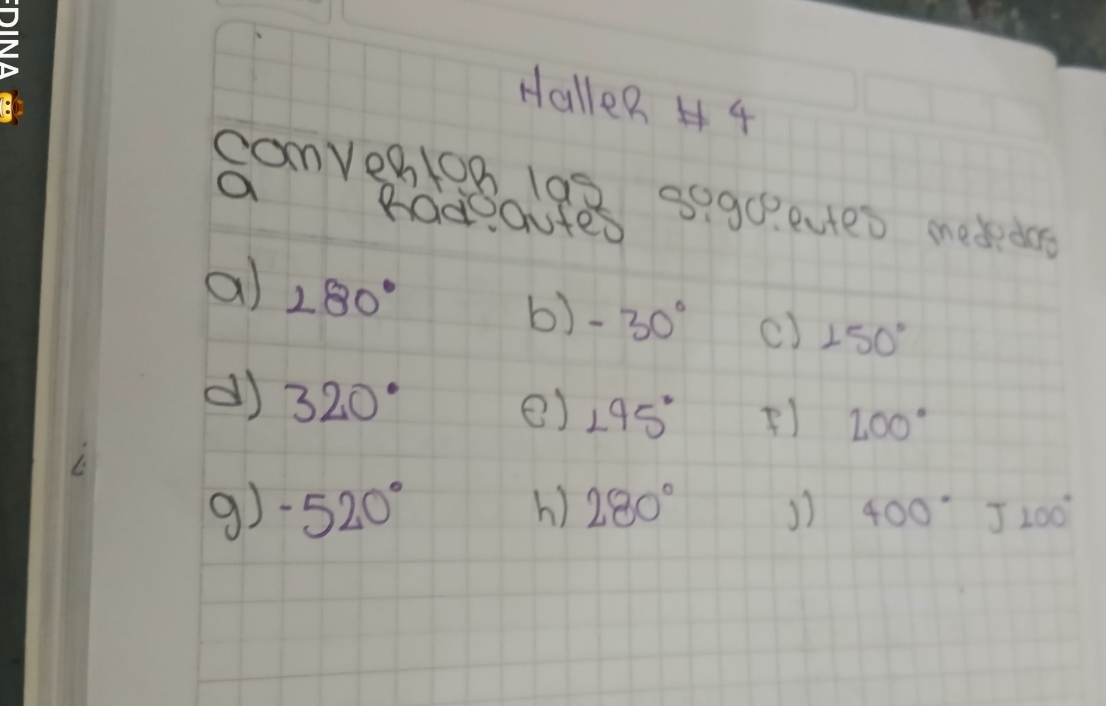 EDINA 🤠
Haller # 4
Convertor las siguientes medidas
a Radiantes
a) 180° b) -30° c) 150°
d) 320° e) 195° f) 100°
g) -520° h) 280° j) 400° J 100°